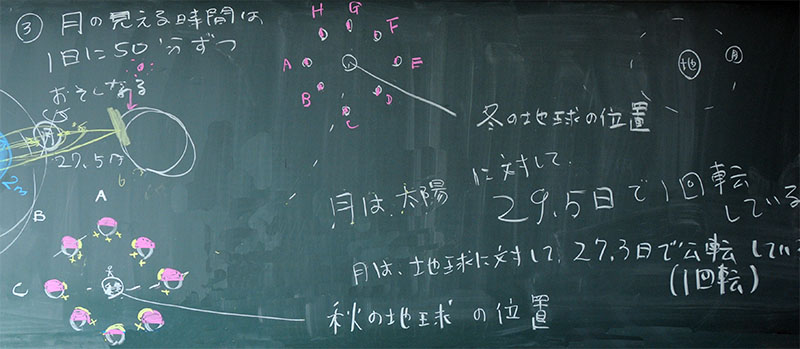 ③月の見える時間は
1日に50分ずつ
おそくなる
27.5日
2m
H
G
F
A
E
B
D
C
地
月
冬の地球の位置
月は太陽に対して、
29.5日で1回転
している
月は、地球に対して、27.3日で公転してい
(1回転)
A
B
C
秋の地球の位置